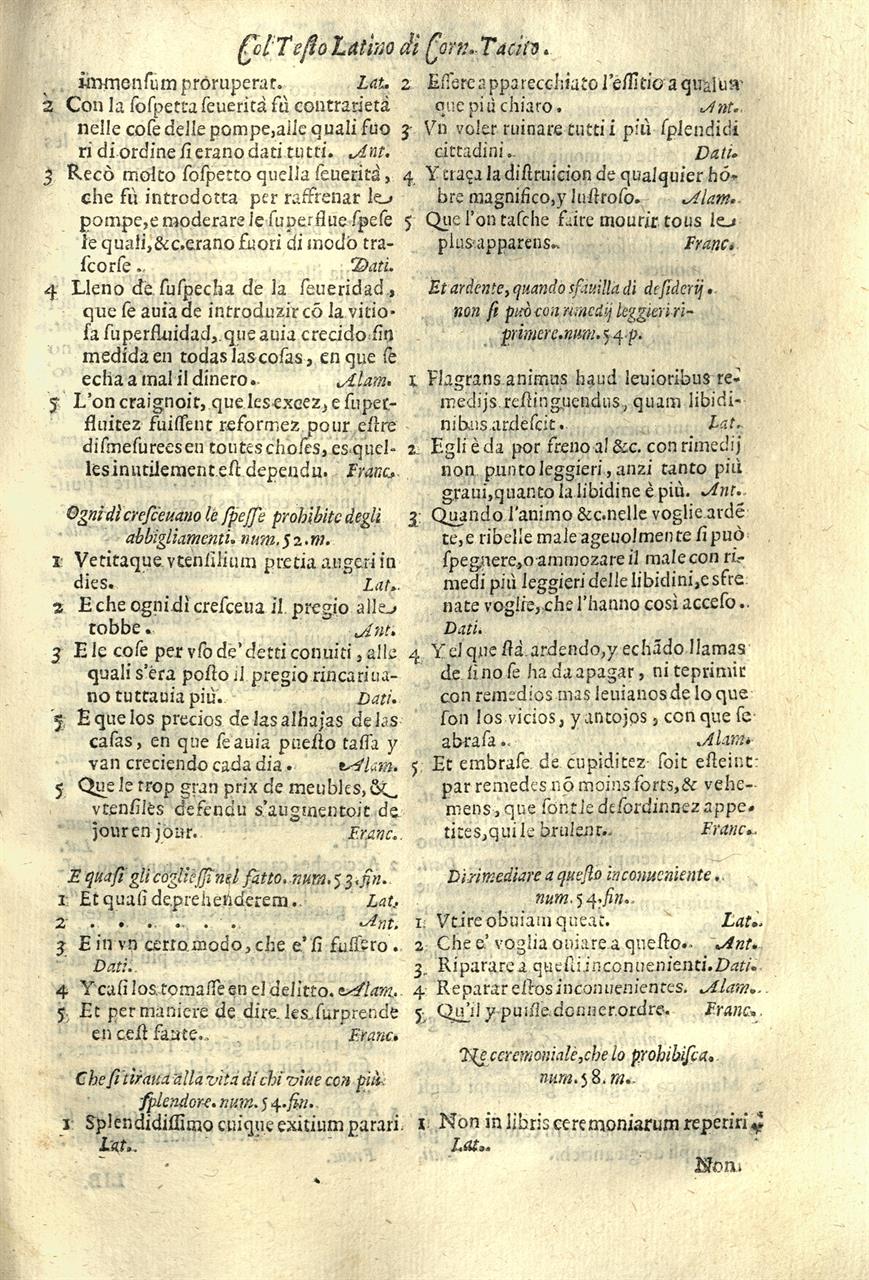 Col Testo Latino di Corn. Tacito.
immensum proruperat. Lat.
2 Con la sospetta seuerità fù contrarietà
nelle cose delle pompe, alle quali fuo
ri di ordine si erano dati tutti. Ant.
3 Recò molto sospetto quella seuerità,
che fù introdotta per raffrenar le
pompe, e moderare le superflue spese
le quali, &c. erano fuori di modo tra-
scorse. Dati.
4 Lleno de suspecha de la seueridad,
que se auia de introduzir cõ la vitio-
sa superfluidad, que auia crecido sin
medida en todas las cosas, en que se
echa a mal il dinero. Alam.
5 L'on craignoit, que les excez, e super-
fluitez fuissent reformez pour estre
dismesurees en toutes choses, es quel-
les inutilement est dependu. Franc.
Ogni dì cresceuano le spesse prohibite degli
abbigliamenti. num. 52. m.
1 Vetitaque vtensilium pretia augeri in
dies. Lat.
2 E che ogni dì cresceua il pregio alle
robbe. Ant.
3 E le cose per vso de' detti conuiti, alle
quali s'era posto il pregio rincariua-
no tuttauia più. Dati.
5 E que los precios de las alhajas de las
casas, en que se auia puesto tassa y
van creciendo cada dia. Alam.
5 Que le trop gran prix de meubles, &
vtensiles defendu s'augmentoit de
jour en jour. Franc.
E quasi gli cogliessi nel fatto. num. 53. fin.
1 Et quasi deprehenderem. Lat.
2 . . . . . . Ant.
3 E in vn certo modo, che e' si fussero.
Dati.
4 Y casi los tomasse en el delitto. Alam.
5 Et per maniere de dire les surprende
en cest faute. Franc.
Che si tiraua alla vita di chi viue con più
splendore. num. 54. fin.
1 Splendidissimo cuique exitium parari
Lat.
2 Essere apparecchiato l'essitio a qualun
que più chiaro. Ant.
3 Vn voler ruinare tutti i più splendidi
cittadini. Dati.
4 Y traça la distruicion de qualquier hõ-
bre magnifico, y lustroso. Alam.
5 Que l'on tasche faire mourir tous le
plus apparens. Franc.
Et ardente, quando sfauilla di desiderij.
non si può con rimedij leggieri ri-
primere. num. 54. p.
1 Flagrans animus haud leuioribus re-
medijs restinguendus, quam libidi-
nibus ardescit. Lat.
2 Egli è da por freno al &c. con rimedij
non punto leggieri, anzi tanto più
graui, quanto la libidine è più. Ant.
3 Quando l'animo &c. nelle voglie ardẽ
te, e ribelle male ageuolmente si può
spegnere, o ammozare il male con ri-
medi più leggieri delle libidini, e sfre
nate voglie, che l'hanno così acceso.
Dati.
4 Y el que stà ardendo, y echãdo llamas
de si no se ha da apagar, ni teprimir
con remedios mas leuianos de lo que
son los vicios, y antojos, con que se
abrasa. Alam.
5 Et embrase de cupiditez soit esteint
par remedes nõ moins forts, & vehe-
mens, que sont le desordinnez appe-
tites, qui le brulent. Franc.
Di rimediare a questo inconueniente.
num. 54. fin.
1 Vt ire obuiam queat. Lat.
2 Che e' voglia ouiare a questo. Ant.
3 Riparare a questi inconuenienti. Dati.
4 Reparar estos inconuenientes. Alam.
5 Qu'il y puisse donner ordre. Franc.
Ne ceremoniale, che lo prohibisca.
num. 58. m.
1 Non in libris ceremoniarum reperiri
Lat.
Non.